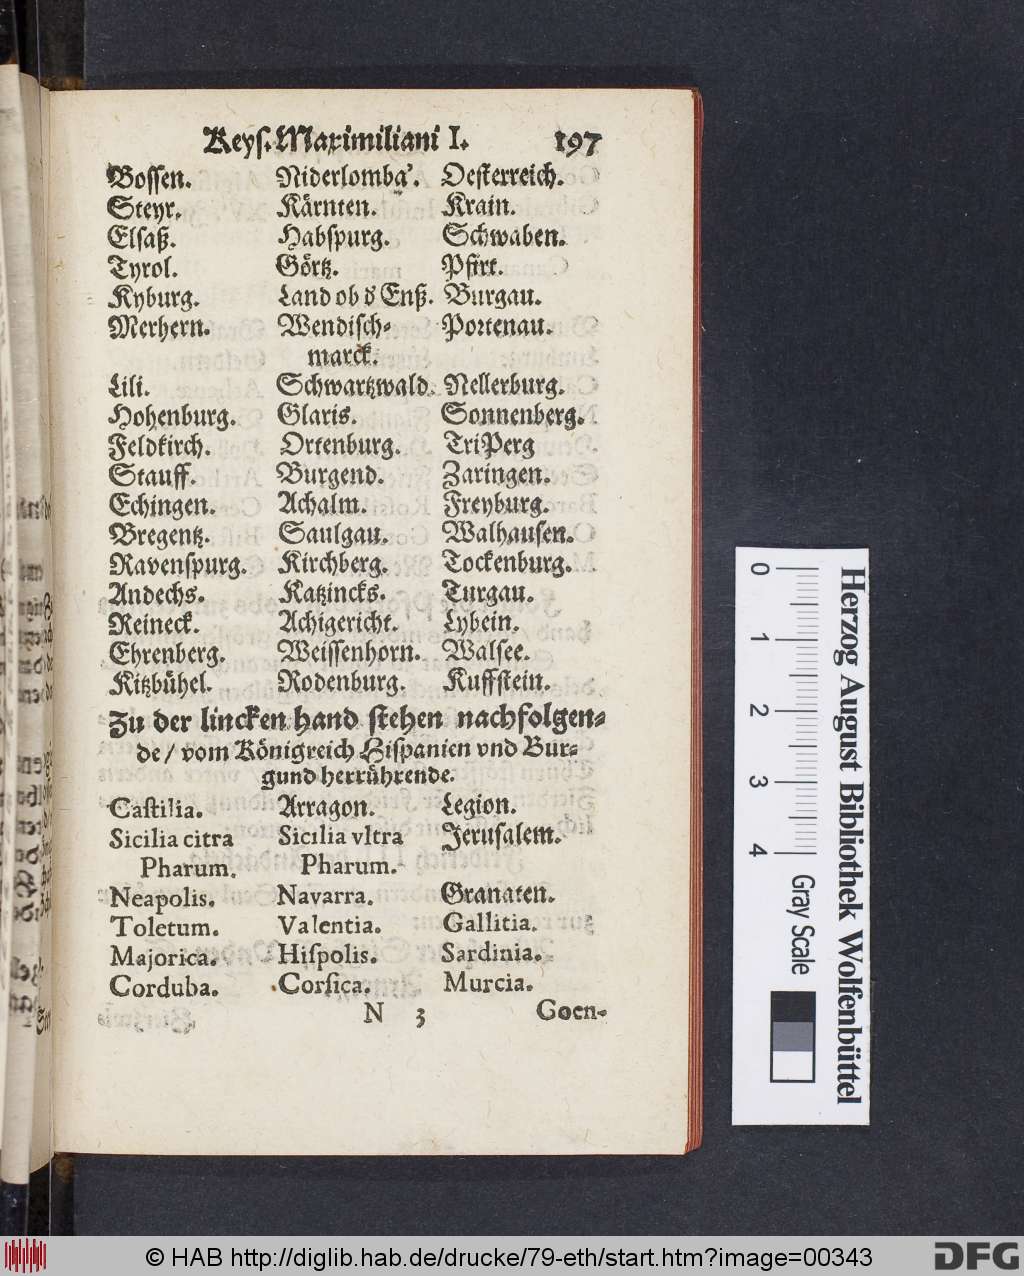 Keyſ. Maximiliani I. 197
Boſſen. Niderlomba'. Oeſterreich.
Steyr. Kärnten. Krain.
Elſaß. Habſpurg. Schwaben.
Tyrol. Görtz. Pfirt.
Kyburg. Land ob d' Enß. Burgau.
Merhern. Wendiſch- Portenau.
marck.
Lili. Schwartzwald. Nellerburg.
Hohenburg. Glaris. Sonnenberg.
Feldkirch. Ortenburg. TriPerg
Stauff. Burgend. Zaringen.
Echingen. Achalm. Freyburg.
Bregentz. Saulgau. Walhauſen.
Ravenſpurg. Kirchberg. Tockenburg.
Andechs. Katzincks. Turgau.
Reineck. Achigericht. Lybein.
Ehrenberg. Weiſſenhorn. Walſee.
Kitzbühel. Rodenburg. Kuffſtein.
Zu der lincken hand ſtehen nachfolgen-
de / vom Königreich Hiſpanien vnd Bur-
gund herrührende.
Caſtilia. Arragon. Legion.
Sicilia citra Sicilia vltra Jeruſalem.
Pharum. Pharum.
Neapolis. Navarra. Granaten.
Toletum. Valentia. Gallitia.
Majorica. Hiſpolis. Sardinia.
Corduba. Corſica. Murcia.
N 3 Goen-
0 1 2 3 4 Gray Scale
Herzog August Bibliothek Wolfenbüttel
© HAB http://diglib.hab.de/drucke/79-eth/start.htm?image=00343
DFG